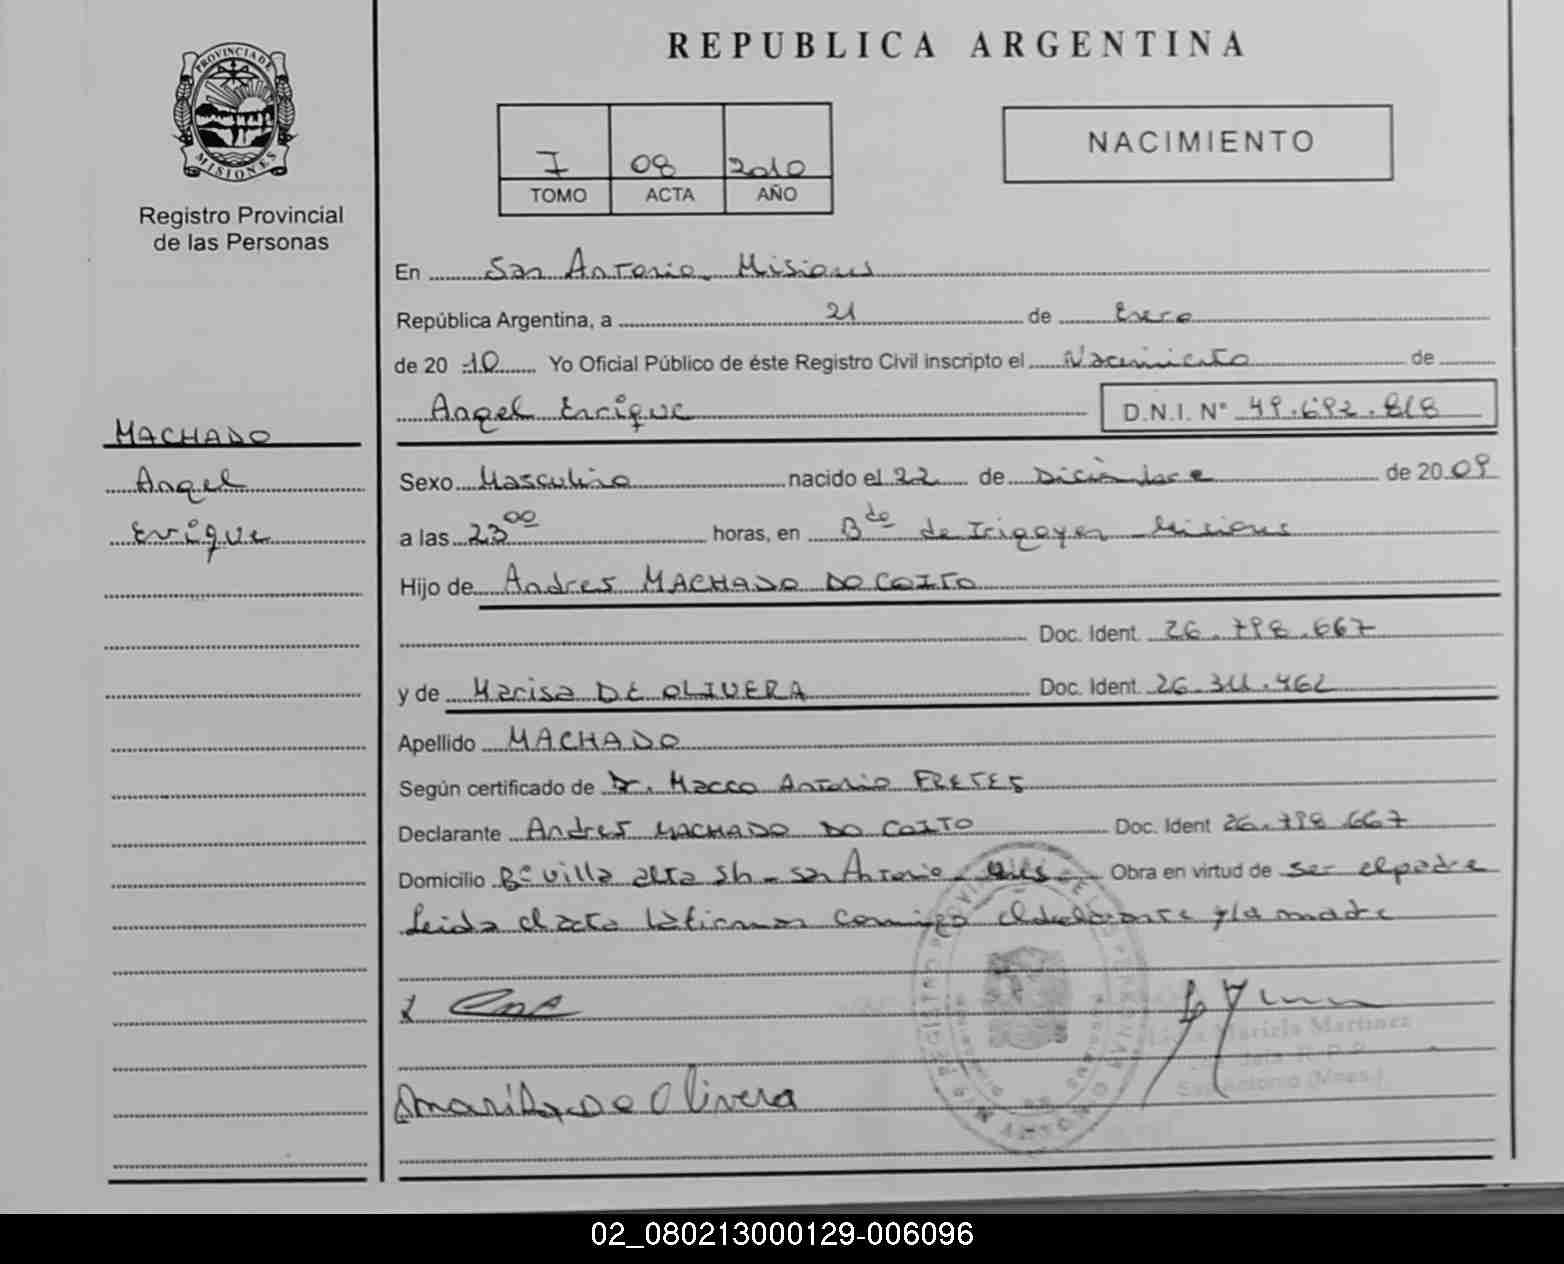 REPUBLICA ARGENTINA
PROVINCIA DE
MISIONES
Registro Provincial
de las Personas
I 08 2010
TOMO ACTA AÑO
NACIMIENTO
En San Antonio, Misiones
República Argentina, a 21 de Enero
de 20 10 Yo Oficial Público de éste Registro Civil inscripto el Nacimiento de
Angel Enrique D.N.I. N° 49.692.818
MACHADO
Angel
Enrique
Sexo Masculino nacido el 22 de Diciembre de 20 09
a las 23 00 horas, en B do de Irigoyen Misiones
Hijo de Andres MACHADO DO COITO
Doc. Ident. 26.798.667
y de Marisa DE OLIVERA Doc. Ident. 26.311.462
Apellido MACHADO
Según certificado de Dr. Marco Antonio FRETES
Declarante Andres MACHADO DO COITO Doc. Ident 26.798.667
Domicilio B° Villa alta Sh - San Antonio - Mnes - Obra en virtud de ser el padre
Leida el acta la firman conmigo el declarante y la madre
Mariela Martinez
Jefa R.P.P.
San Antonio (Mnes.)
De Olivera
02_080213000129-006096